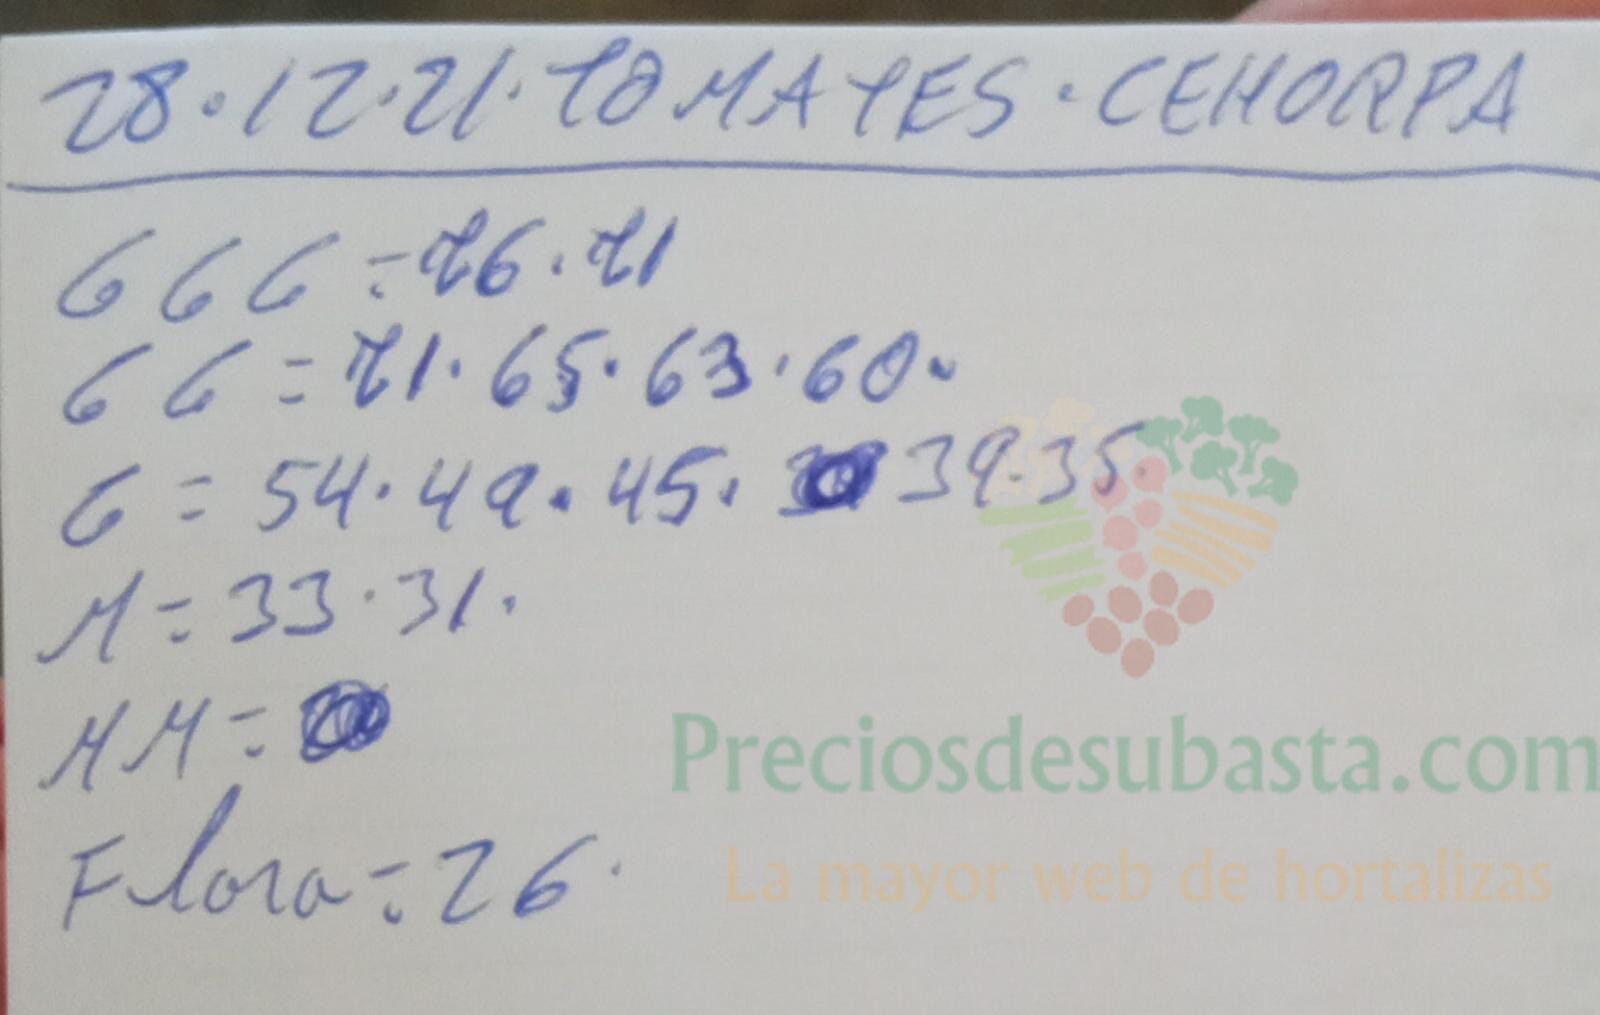 28.12.21. TOMATES. CEHORPA
GGG = 76.71
GG = 71.65.63.60.
G = 54.49.45. 39.35.
M = 33.31.
MM =
Flora = 26.
Preciosdesubasta.com
La mayor web de hortalizas